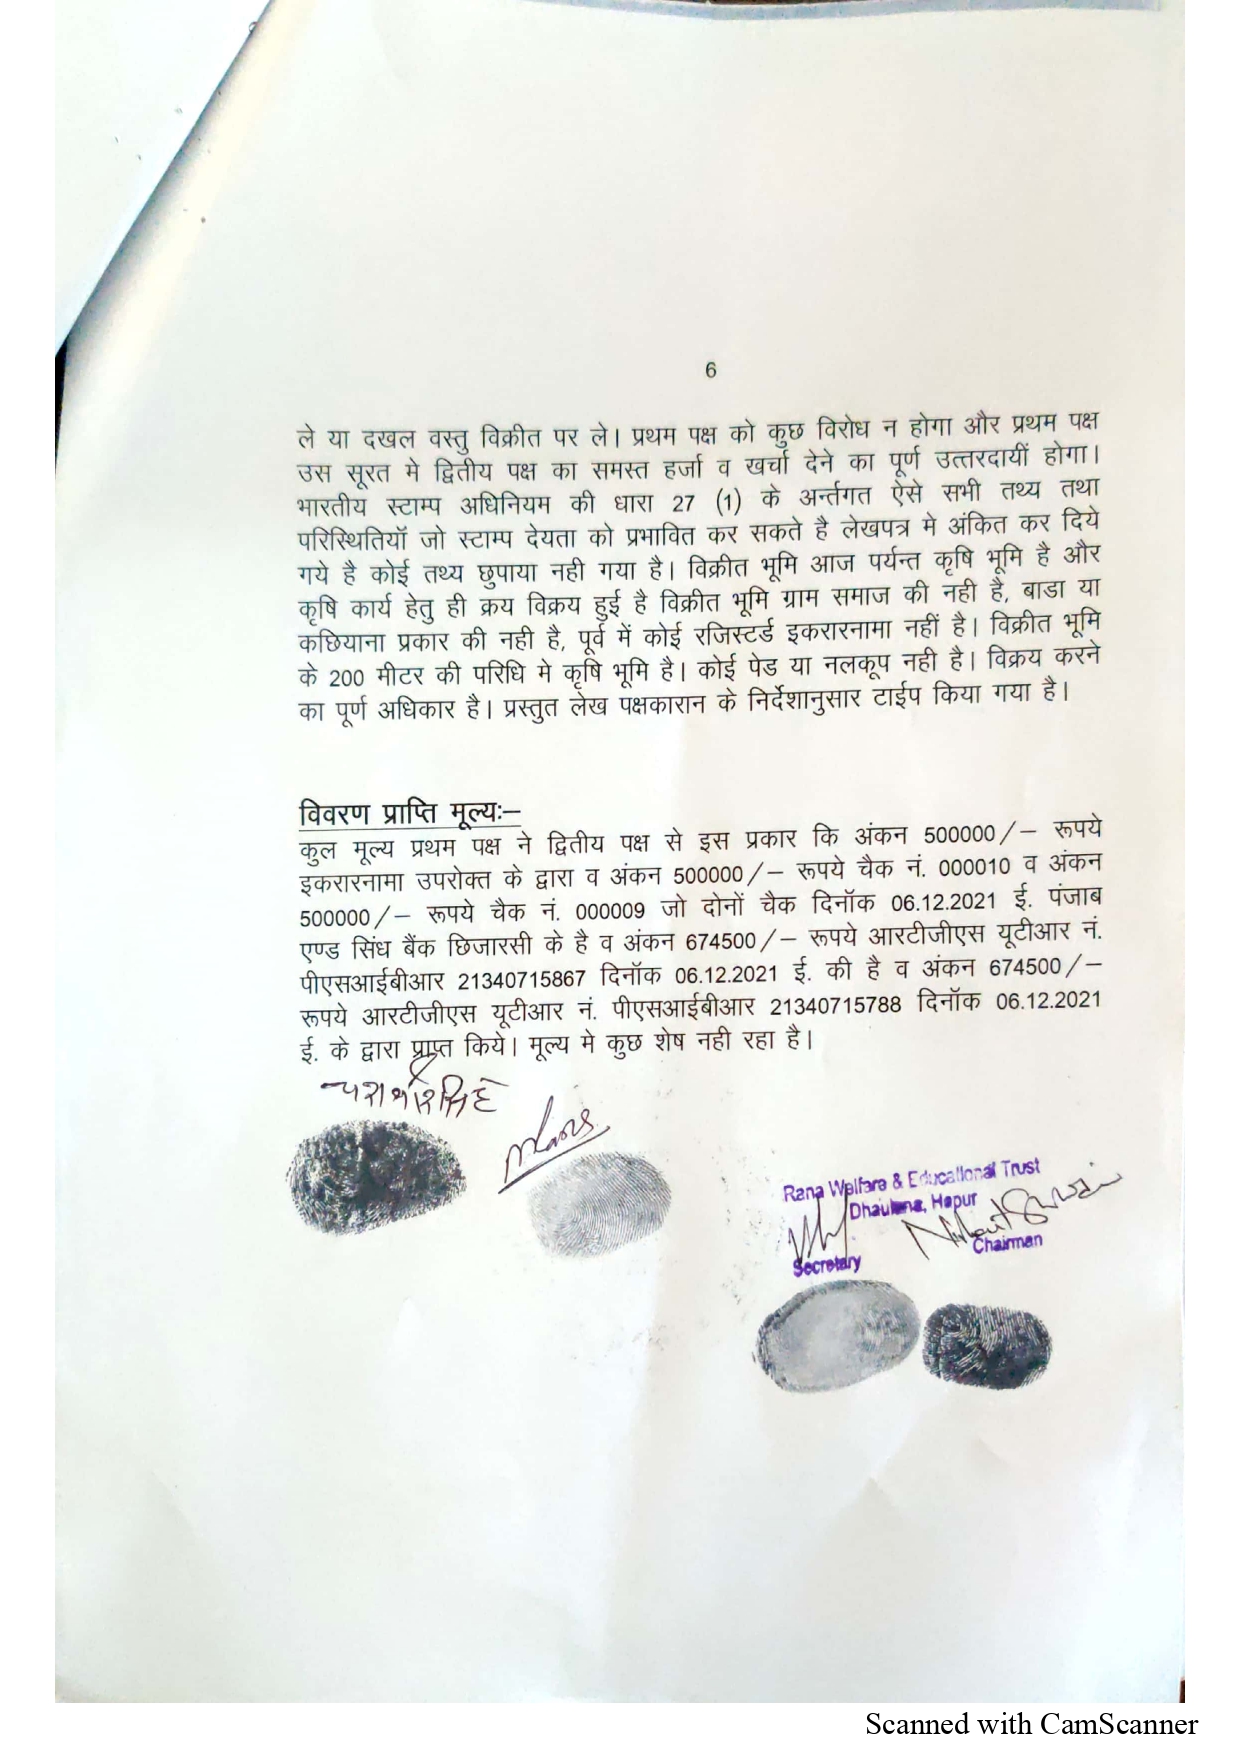 6
ले या दखल वस्तु विक्रीत पर ले। प्रथम पक्ष को कुछ विरोध न होगा और प्रथम पक्ष
उस सूरत मे द्वितीय पक्ष का समस्त हर्जा व खर्चा देने का पूर्ण उत्तरदायीं होगा।
भारतीय स्टाम्प अधिनियम की धारा 27 (1) के अर्न्तगत ऐसे सभी तथ्य तथा
परिस्थितियॉ जो स्टाम्प देयता को प्रभावित कर सकते है लेखपत्र मे अंकित कर दिये
गये है कोई तथ्य छुपाया नही गया है। विक्रीत भूमि आज पर्यन्त कृषि भूमि है और
कृषि कार्य हेतु ही क्रय विक्रय हुई है विक्रीत भूमि ग्राम समाज की नही है, बाडा या
कछियाना प्रकार की नही है, पूर्व में कोई रजिस्टर्ड इकरारनामा नहीं है। विक्रीत भूमि
के 200 मीटर की परिधि मे कृषि भूमि है। कोई पेड या नलकूप नही है। विक्रय करने
का पूर्ण अधिकार है। प्रस्तुत लेख पक्षकारान के निर्देशानुसार टाईप किया गया है।
विवरण प्राप्ति मूल्यः–
कुल मूल्य प्रथम पक्ष ने द्वितीय पक्ष से इस प्रकार कि अंकन 500000/– रूपये
इकरारनामा उपरोक्त के द्वारा व अंकन 500000/– रूपये चैक नं. 000010 व अंकन
500000/– रूपये चैक नं. 000009 जो दोनों चैक दिनॉक 06.12.2021 ई. पंजाब
एण्ड सिंध बैंक छिजारसी के है व अंकन 674500/– रूपये आरटीजीएस यूटीआर नं.
पीएसआईबीआर 21340715867 दिनॉक 06.12.2021 ई. की है व अंकन 674500/–
रूपये आरटीजीएस यूटीआर नं. पीएसआईबीआर 21340715788 दिनॉक 06.12.2021
ई. के द्वारा प्राप्त किये। मूल्य मे कुछ शेष नही रहा है।
Rana Welfare & Educational Trust
Dhaulana, Hapur
Secretary
Chairman
Scanned with CamScanner